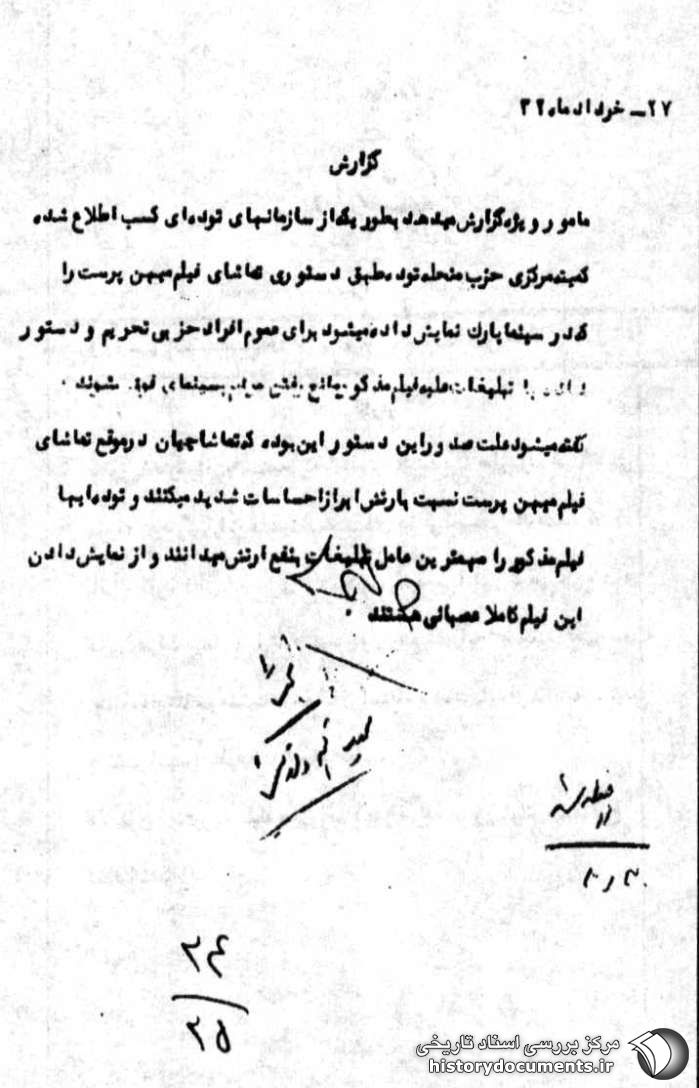 ۲۷ــ خردادماه ۳۲
گزارش
مامور ویژه گزارش میدهد بطوریکه از سازمانهای توده‌ای کسب اطلاع شده
کمیته مرکزی حزب منحله توده طبق دستوری تماشای فیلم میهن پرست را
که در سینما پارك نمایش داده میشود برای عموم افراد حزبی تحریم و دستور
داده با تبلیغات علیه فیلم مذکور مانع رفتن مردم بسینمای فوق شوند ۰
گفته میشود علت صدور این دستور این بوده که تماشاچیان در موقع تماشای
فیلم میهن پرست نسبت بارتش ابراز احساسات شدید میکنند و توده‌ایها
فیلم مذکور را مهمترین عامل تبلیغات بنفع ارتش میدانند و از نمایش دادن
این فیلم کاملا عصبانی هستند ۰
۳۴
۲۵
مرکز بررسی اسناد تاریخی
historydocuments.ir